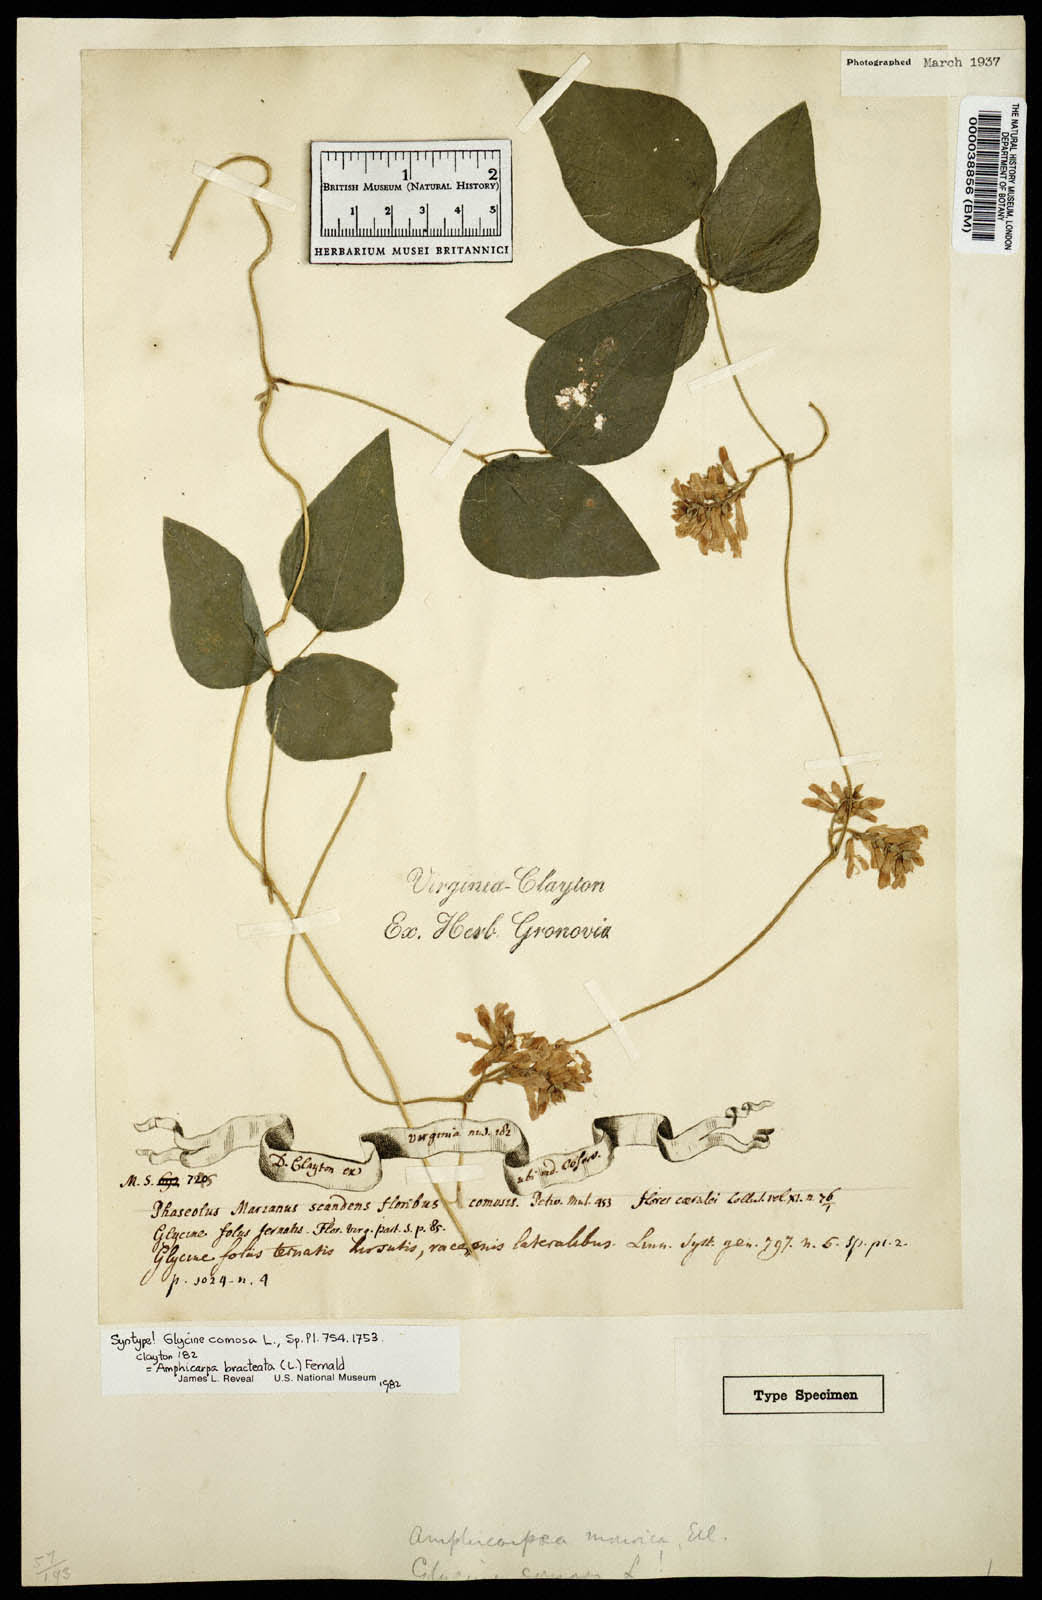 Photographed March 1937
THE NATURAL HISTORY MUSEUM, LONDON
DEPARTMENT OF BOTANY
000038856 (BM)
1 2
BRITISH MUSEUM (NATURAL HISTORY)
1 2 3 4 5
HERBARIUM MUSEI BRITANNICI
Virginia-Clayton
Ex. Herb. Gronovia
D. Clayton ex
Virginia nu. 182
ubi vid. Observ.
M. S. 7205
Phaseolus Marianus scandens floribus comosis. Petiv. Mus. 453 flores cærulei Collect. vol. XI. n. 76
Glycine foliis ternatis. Flor. Virg. part. I. p. 85.
Glycine foliis ternatis hirsutis, racemis lateralibus. Linn. Syst. gen. 797. n. 5. Sp. pl. 2.
p. 1024. n. 4
Syntype! Glycine comosa L., Sp. Pl. 754. 1753.
Clayton 182
= Amphicarpa bracteata (L.) Fernald
James L. Reveal U.S. National Museum 1982
Type Specimen
Amphicarpæa monoica, Ell.
Glycine comosa L!
57/193
1